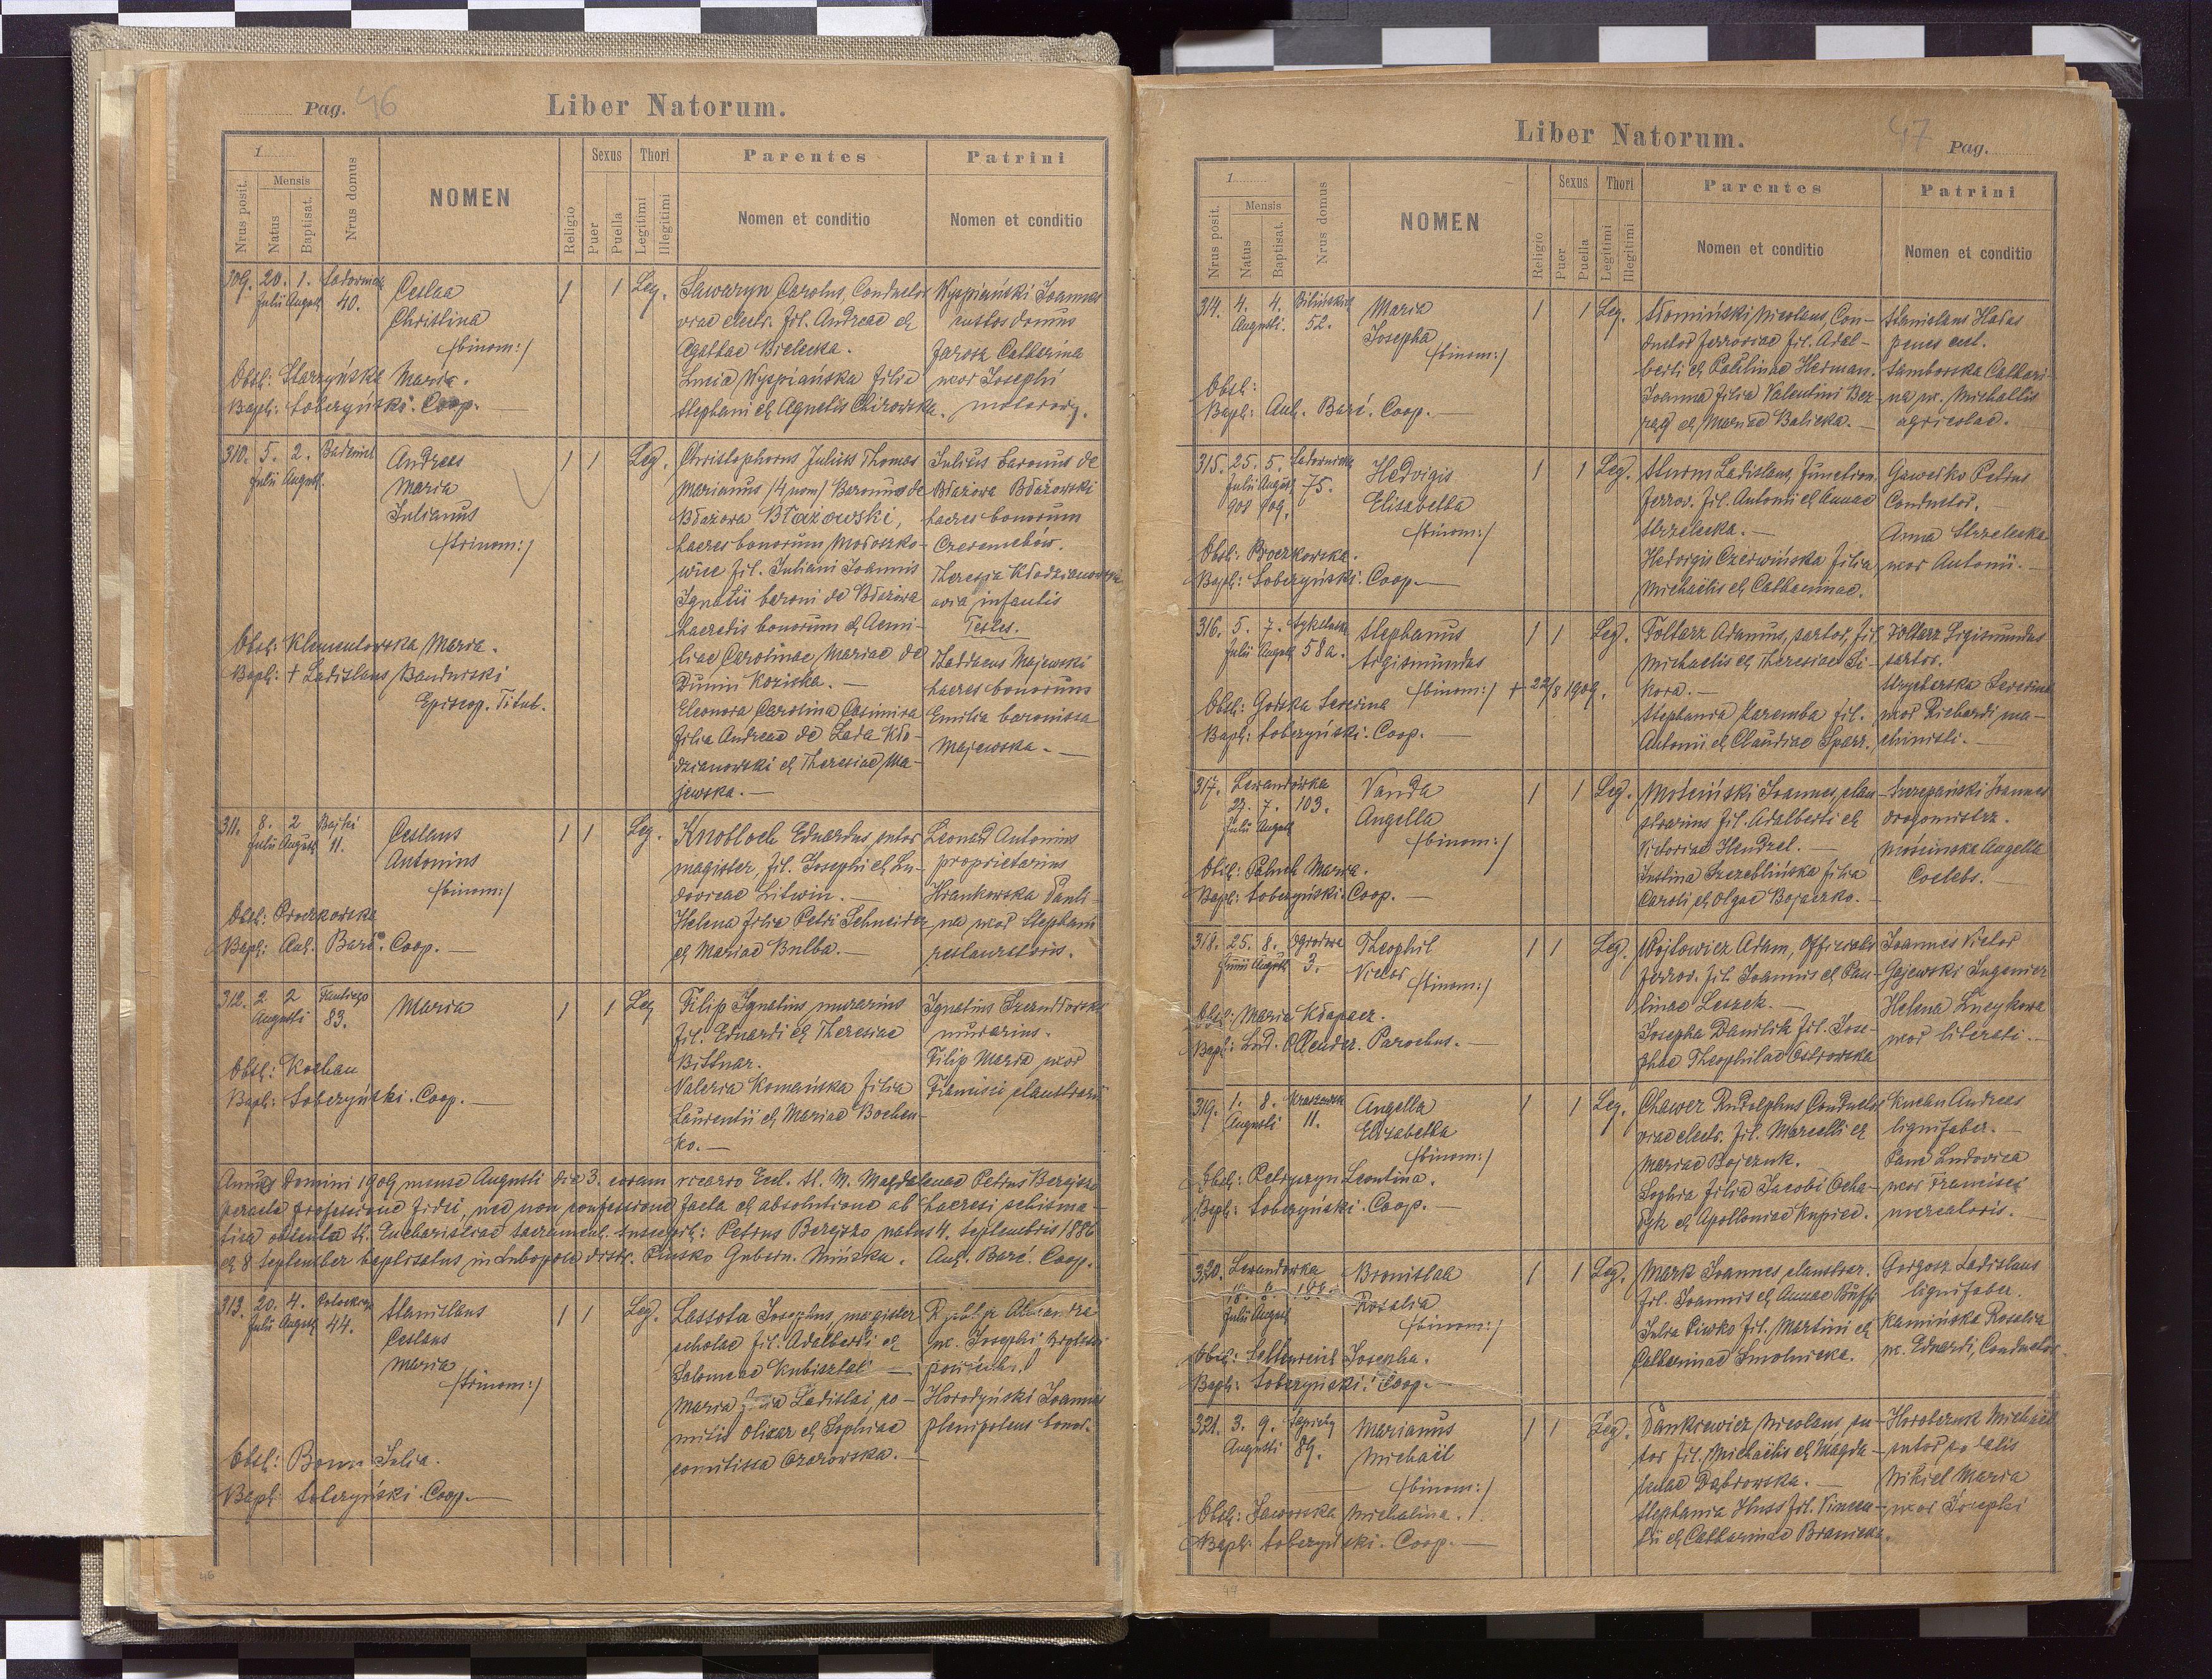 Pag. 46
Liber Natorum.
1
Nrus posit.
Mensis
Natus
Baptisat.
Nrus domus
NOMEN
Religio
Sexus
Puer
Puella
Thori
Legitimi
Illegitimi
Parentes
Nomen et conditio
Patrini
Nomen et conditio
309. 20. 1.
Julii August. 40.
Ceslaa
Christina
/binom:/
1 1 Leg.
Obst: Starzyńska Maria.
Bapt: Soberzyński. Coop.
Sawaryn Carolus, Conductor
viae electr. fil. Andreae et
Agathae Bielecka.
Lucia Wyspiańska filia
Stephani et Agnetis Chirowska.
Wyspiański Joannes
custos domus
Jarosz Catharina
uxor Josephi
motorowy.
310. 5. 2.
Julii August.
Andreas
Maria
Julianus
/trinom:/
1 1 Leg.
Obst: Klementowska Maria.
Bapt: + Ladislaus Bandurski
Episcop. Titul.
Christophorus Julius Thomas
Marianus /4 nom/ Baronus de
Błażowa Błażowski,
haeres bonorum Mołoszko-
wice fil. Juliani Joannis
Ignatii baroni de Błażowa
haeredis bonorum et Aemi-
liae Carolinae Mariae de
Dunin Koziska.
Eleonora Carolina Casimira
filia Andreae de Łada Kło-
dzianowski et Theresiae Ma-
jewska.
Julius baronus de
Błażowa Błażowski
haeres bonorum
Czeremchów.
Theresia Kłodzianowska
avia infantis
Testes.
Thaddaeus Majewski
haeres bonorum
Emilia baronissa
Majewska.
311. 8. 2 Bajki
Julii August 11.
Ceslaus
Antonius
/binom:/
1 1 Leg.
Obst: Proczkowska
Bapt: Ant. Barć. Coop.
Knobloch Eduardus, sutor
magister, fil. Josephi et Lu-
dovicae Litwin.
Helena filia Petri Schneider
et Mariae Bulba.
Leonard Antonius
proprietarius
Hrankowska Pauli-
na uxor Stephani
restauratoris.
312. 2 2
Augusti 83.
Maria
1 1 Leg
Obst: Kochan
Bapt: Soberzyński. Coop.
Filip Ignatius murarius
fil. Eduardi et Theresiae
Bittnar.
Valeria Komańska filia
Laurentii et Mariae Bochen-
ko.
Ignatius
murarius.
Filip Maria uxor
Francisci claustrarii
Annus Domini 1909 mense Augusti die 3. coram vicario Eccl. St. M. Magdalenae Petrus Bereżko
peracta professione fidei, nec non confessione facta et absolutione ab haeresi schisma-
tica obtenta St. Eucharistiae sacrament. suscepit: Petrus Bereżko natus 4. Septembris 1886
et 8 September baptisatus in Lubopole distr. Pińsko Gubern. Mińska. Ant. Barć. Coop.
313. 20. 4.
Julii August 44.
Stanislaus
Ceslaus
Maria
/trinom:/
1 1 Leg.
Obst: Bonn Julia.
Bapt: Soberzyński. Coop.
Lassota Josephus, magister
scholae fil. Adalberti et
Salomeae Kubisztal
Maria filia Ladislai, co-
mitis Olizar et Sophiae
comitissa Czarowska.
Horodyński Joannes
plenipotens bonor.
46

Liber Natorum.
47 Pag.
1
Nrus posit.
Mensis
Natus
Baptisat.
Nrus domus
NOMEN
Religio
Sexus
Puer
Puella
Thori
Legitimi
Illegitimi
Parentes
Nomen et conditio
Patrini
Nomen et conditio
314. 4. 4. Bilińskich
Augusti. 52.
Maria
Josepha
/binom:/
1 1 Leg.
Obst:
Bapt: Ant. Barć. Coop.
Słomiński Nicolaus, Con-
ductor ferroviae fil. Adal-
berti et Paulinae Herman.
Joanna filia Valentini Bez-
et Mariae Balicka.
Stanislaus Hadas
penes eccl.
Samborska Cathari-
na ux. Michaëlis
agricolae.
315. 25. 5.
Julii August 75.
908 909.
Hedvigis
Elisabetha
/binom:/
1 1 Leg.
Obst: Proczkowska.
Bapt: Soberzyński. Coop.
Sturm Ladislaus, function.
ferrov. fil. Antonii et Annae
Strzelecka.
Hedvigis Czerwińska filia
Michaëlis et Catharinae.
Gawełko Petrus
Conductor.
Anna Strzelecka
uxor Antonii.
316. 5. 7.
Julii August 58a.
Stephanus
Sigismundus
/binom:/ + 22/8 1909.
1 1 Leg.
Obst: Górska Severina
Bapt: Soberzyński. Coop.
Foltarz Adamus, sartor, fil.
Michaelis et Theresiae Si-
kora.
Stephania Zaremba fil.
Antonii et Claudiae Sparz.
Foltarz Sigismundus
sartor.
Severina
uxor Richardi ma-
chinisti.
317. Lewandówka
27. 7. 103.
Julii August
Vanda
Angella
/binom:/
1 1 Leg.
Obst: Maria.
Bapt: Soberzyński. Coop.
Mościński Joannes, clau-
strarius fil. Adalberti et
Victoriae Hendzel.
Justina Szczeblińska filia
Caroli et Olgae Bojaczko.
Szczepański Joannes
drogomistrz.
Mościńska Angella
Coelebs.
318. 25. 8. Ogrodowa
Junii August 3.
Theophil
Victor
/binom:/
1 1 Leg.
Obst: Maria Kłapacz.
Bapt: Lud. Ollender. Parochus.
Wojtowicz Adam, Officialis
ferrov. fil. Joannis et Pau-
linae Leszek.
Josepha Danilik fil. Jose-
phae Theophilae Ostrowska
Joannes Victor
Gajewski Ingenier
Helena
uxor literati.
319. 1. 8.
Augusti 11.
Angella
Elisabetha
/binom:/
1 1 Leg.
Obst: Petryszyn Leontina.
Bapt: Soberzyński. Coop.
Chawer Rudolphus Conductor
viae electr. fil. Marcelli et
Mariae Bojczuk.
Sophia filia Jacobi Ocha-
et Apolloniae Kupiec.
Kuchn Andreas
lignifaber.
Pane Ludovica
uxor Francisci
mercatoris.
320. Lewandówka
Julii August
Bronislaa
Rosalia
/binom:/
1 1 Leg.
Obst: Josepha.
Bapt: Soberzyński. Coop.
Mark Joannes claustrar.
fil. Joannis et Annae Buff.
Julia Piwko fil. Martini et
Catharinae Smolnicka.
Gorgosz Ladislaus
lignifaber.
Kamińska Rosalia
ux. Eduardi, Conductor.
321. 3. 9. Sapiehy
Augusti 89.
Marianus
Michaël
/binom:/
1 1 Leg.
Obst: Jaworska Michalina.
Bapt: Soberzyński. Coop.
Pankiewicz Nicolaus, su-
tor fil. Michaëlis et Magda-
lenae Dąbrowska.
Stephania Huss fil. Vincen-
tii et Catharinae Branicka.
Horobczuk Michaël
sutor sodalis
Nikiel Maria
uxor Josephi
47